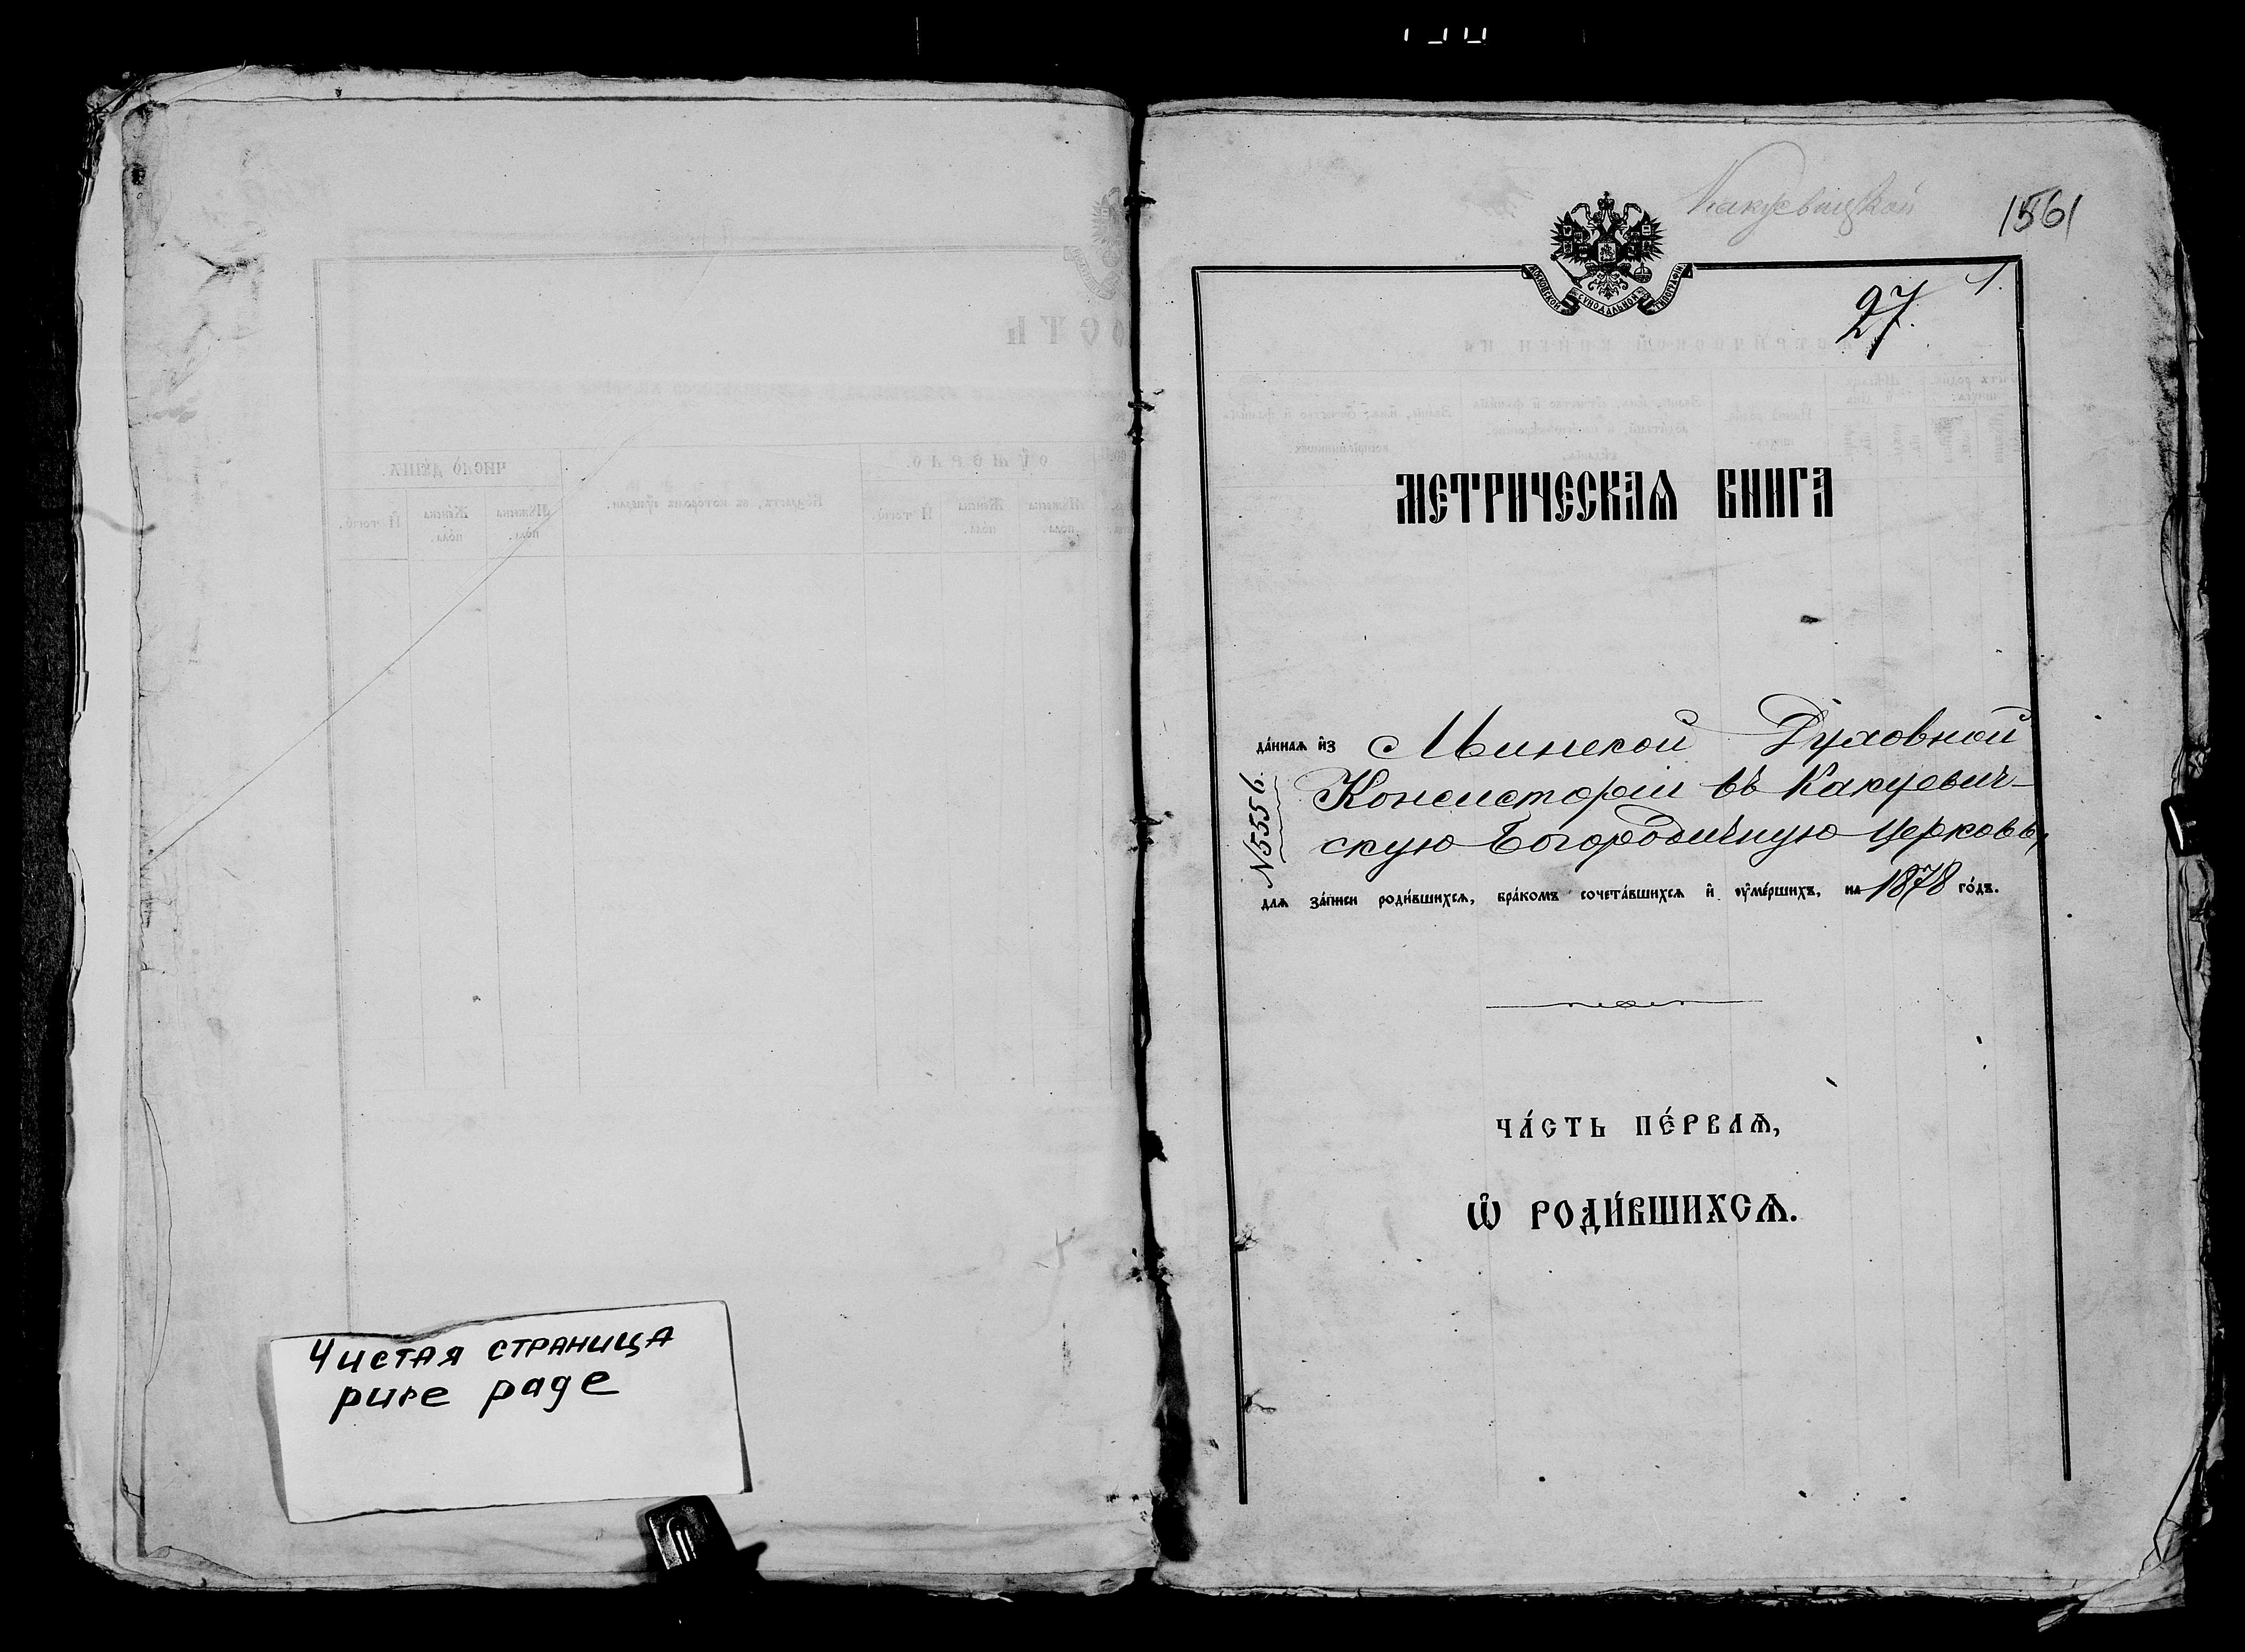 Чистая страница
pure page
Какуевицкой
1561
МОСКОВСКОЙ СѴНОДАЛЬНОЙ ТИПОГРАФІИ
27. 1.
МЕТРИЧЕСКАѦ КНИГА
да́ннаѧ и҆з Минской Духовной
Консисторіи въ Какуевич-
скую Богородичную церковь,
№5556.
длѧ за́писи роди́вшихсѧ, бра́комъ сочета́вшихсѧ и҆ ᲂу҆ме́ршихъ, на 1878 го́дъ.
ЧА́СТЬ ПЕ́РВАѦ,
Ѡ҆ РОДИ́ВШИХСѦ.